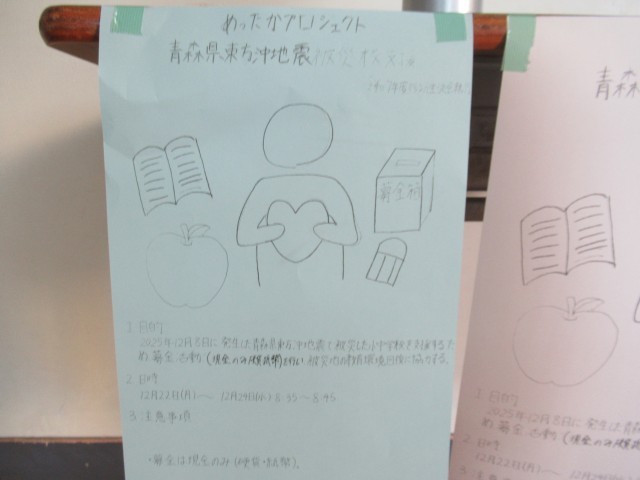 めったかプロジェクト
青森県東方沖地震被災校支援
募金箱
1. 目的
2025年12月8日に発生した青森県東方沖地震で被災した小中学校を支援するた
め募金活動(現金のみ/硬貨・紙幣)を行い、被災地の教育環境回復に協力する。
2. 日時
12月22日(月)～ 12月24日(水) 8:35～8:45
3. 注意事項
・募金は現金のみ(硬貨・紙幣)。
青森
1. 目的
2025年12月8日に発生した青
め募金活動(現金のみ
2. 日時
12月22日(月)～
3. 注意事項